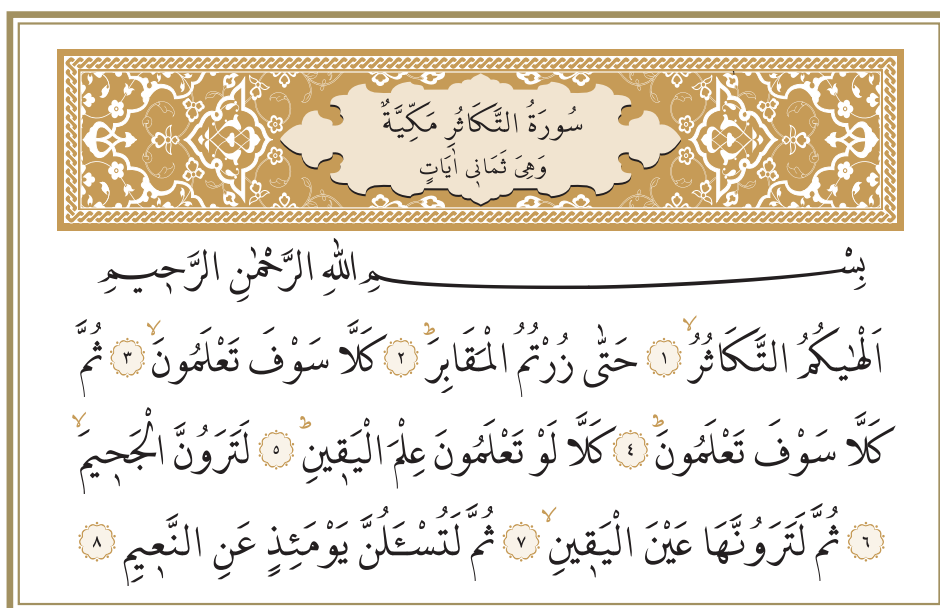 سُورَةُ التَّكَاثُرِ مَكِّيَّةٌ
وَهِيَ ثَمَانٖى اٰيَاتٍ
بِسْمِ اللّٰهِ الرَّحْمٰنِ الرَّحٖيمِ
اَلْهٰيكُمُ التَّكَاثُرُۙ ﴿١﴾ حَتّٰى زُرْتُمُ الْمَقَابِرَۜ ﴿٢﴾ كَلَّا سَوْفَ تَعْلَمُونَۙ ﴿٣﴾ ثُمَّ
كَلَّا سَوْفَ تَعْلَمُونَۜ ﴿٤﴾ كَلَّا لَوْ تَعْلَمُونَ عِلْمَ الْيَقٖينِۜ ﴿٥﴾ لَتَرَوُنَّ الْجَحٖيمَۙ
﴿٦﴾ ثُمَّ لَتَرَوُنَّهَا عَيْنَ الْيَقٖينِۙ ﴿٧﴾ ثُمَّ لَتُسْـَٔلُنَّ يَوْمَئِذٍ عَنِ النَّعٖيمِ ﴿٨﴾